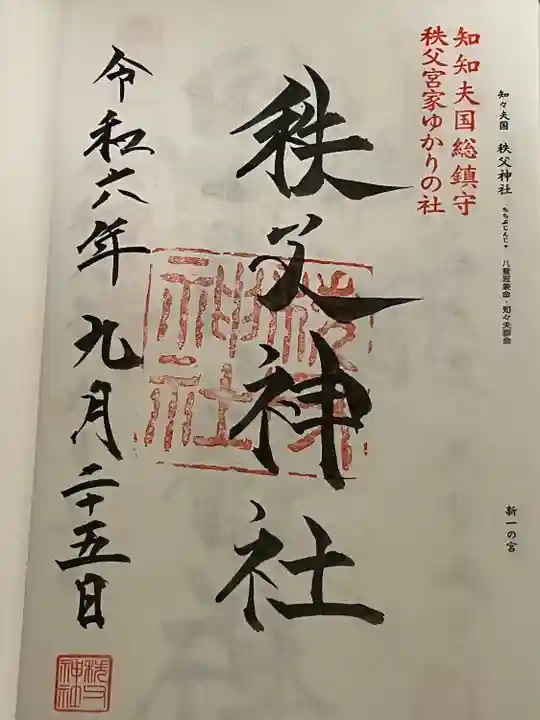 知々夫国 秩父神社 ちちぶじんじゃ 八意思兼命・知々夫彦命
新一の宮
知知夫国総鎮守
秩父宮家ゆかりの社
秩父神社
秩父神社
令和六年九月二十五日
秩父神社